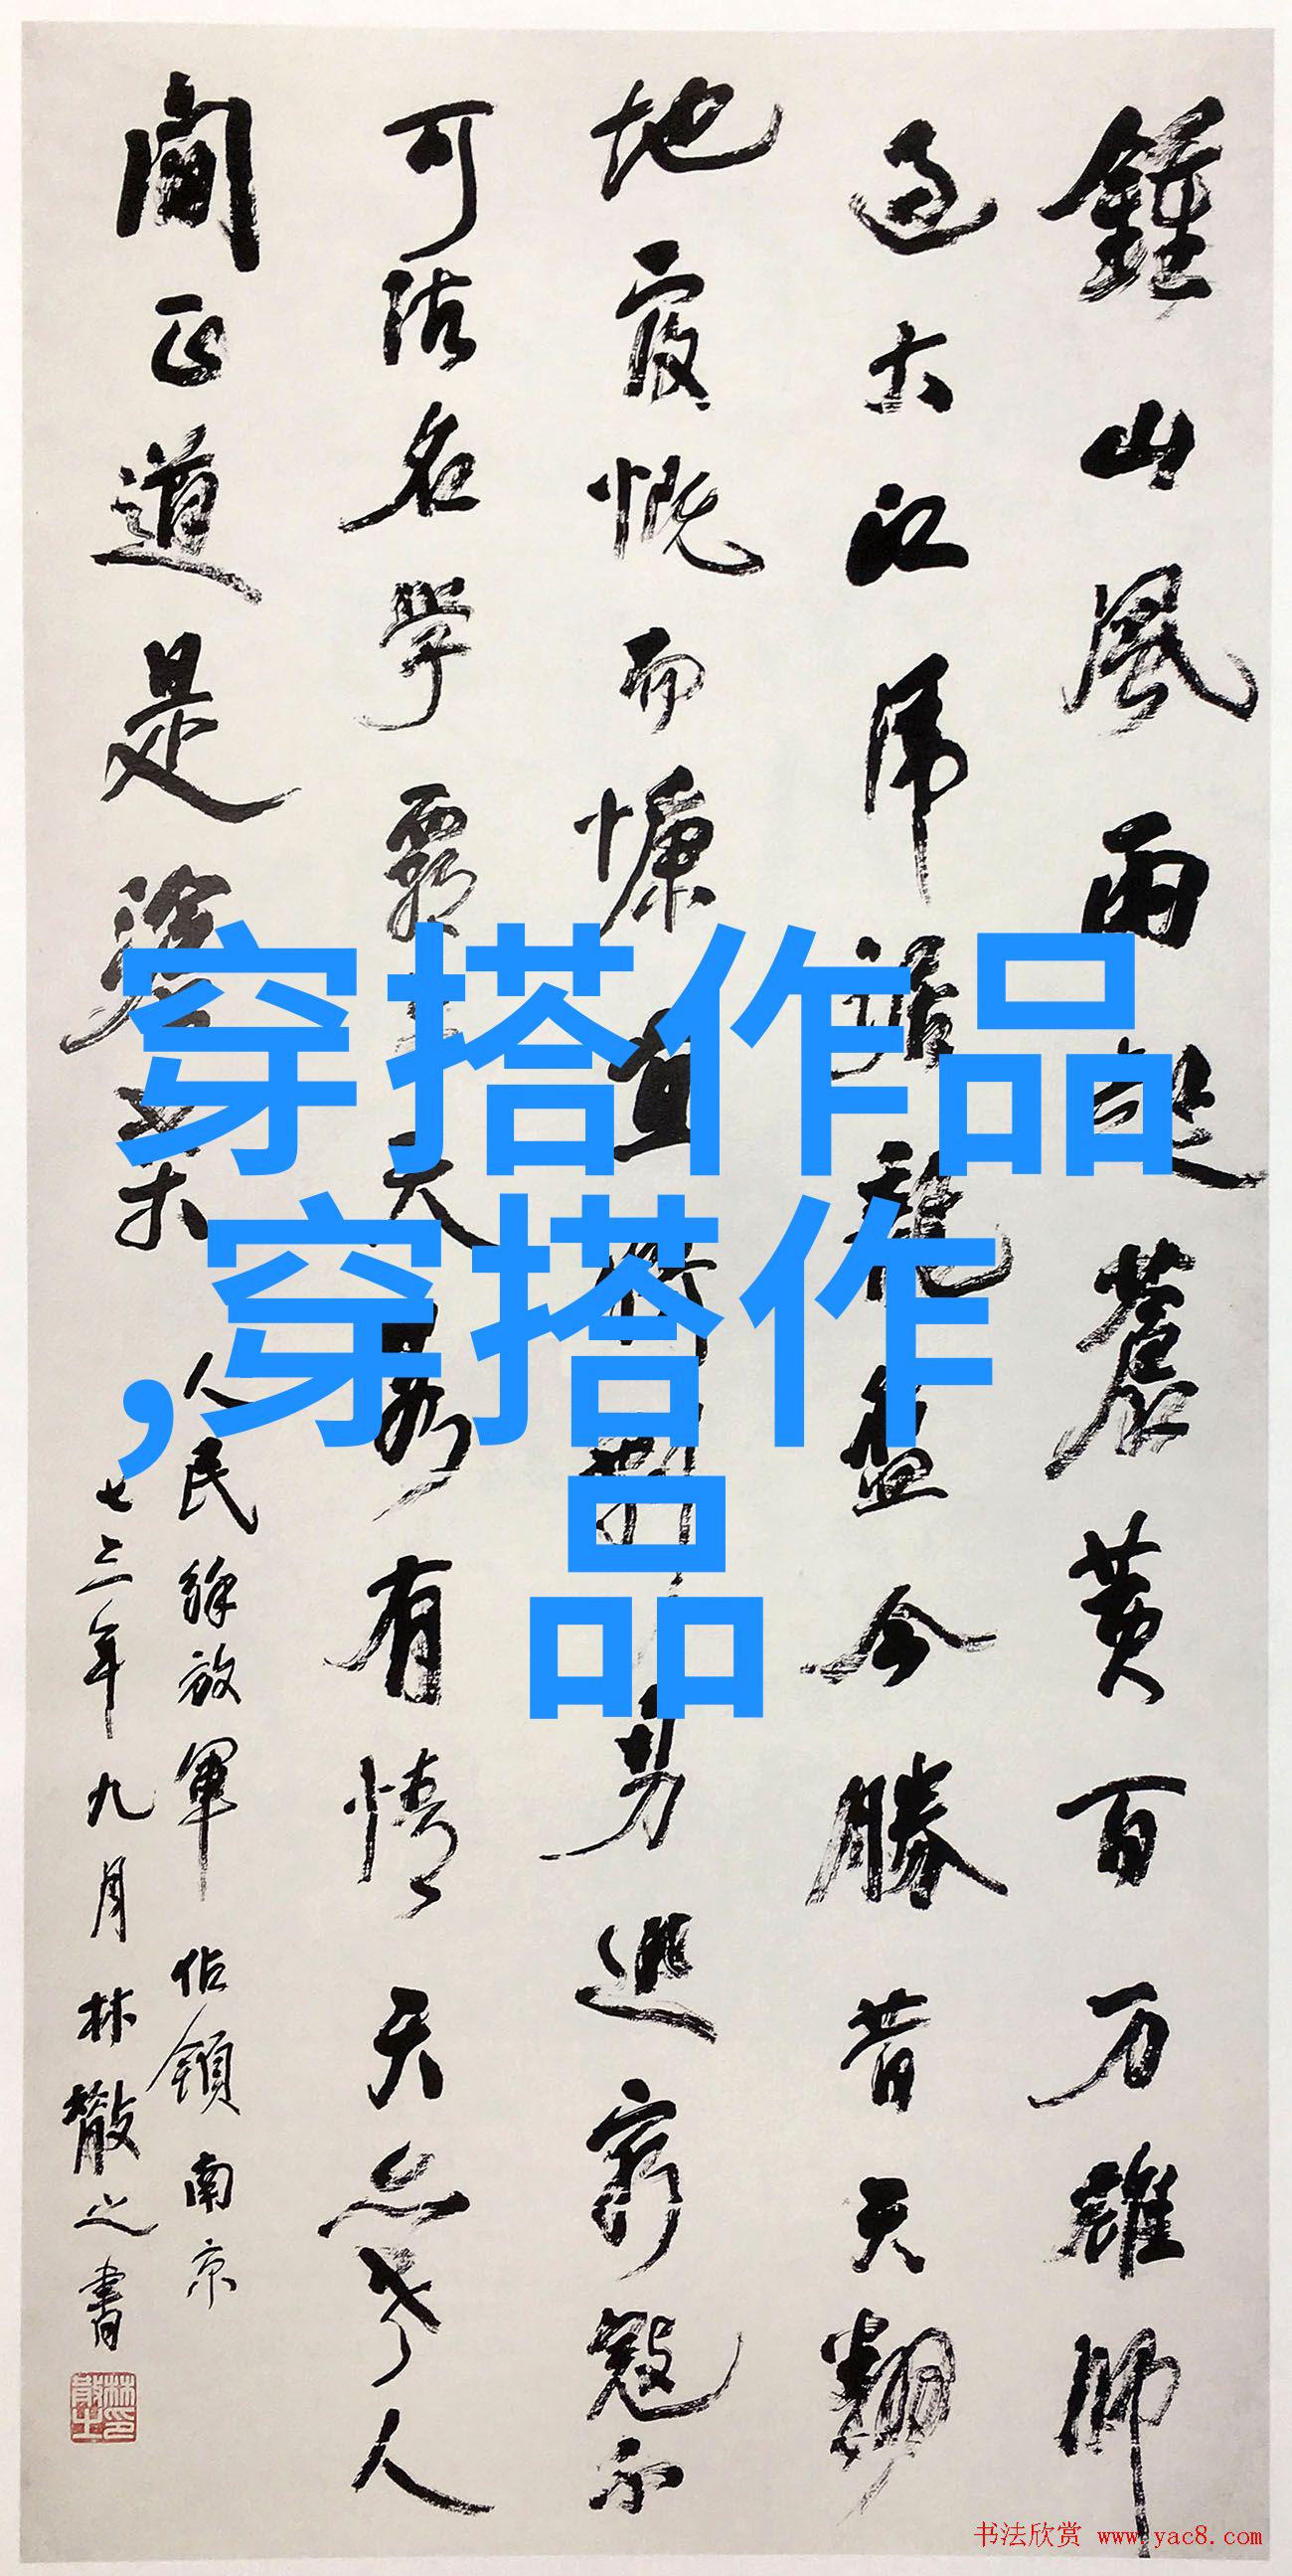 鍾山風雨起蒼黄百万雄師
过大江虎踞龍盘今勝昔天翻
地覆慨而慷宜将剩勇追窮寇不
可沽名學霸王天若有情天亦老人
間正道是滄桑
人民解放軍佔領南京
七三年九月林散之書
林散之印
穿搭作品
,穿搭作
品
书法欣赏 www.yac8.com